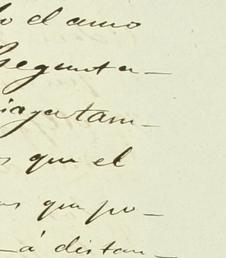 o el amo
Pregunta—
iaya tam—
s que el
as que po—
—á distan—